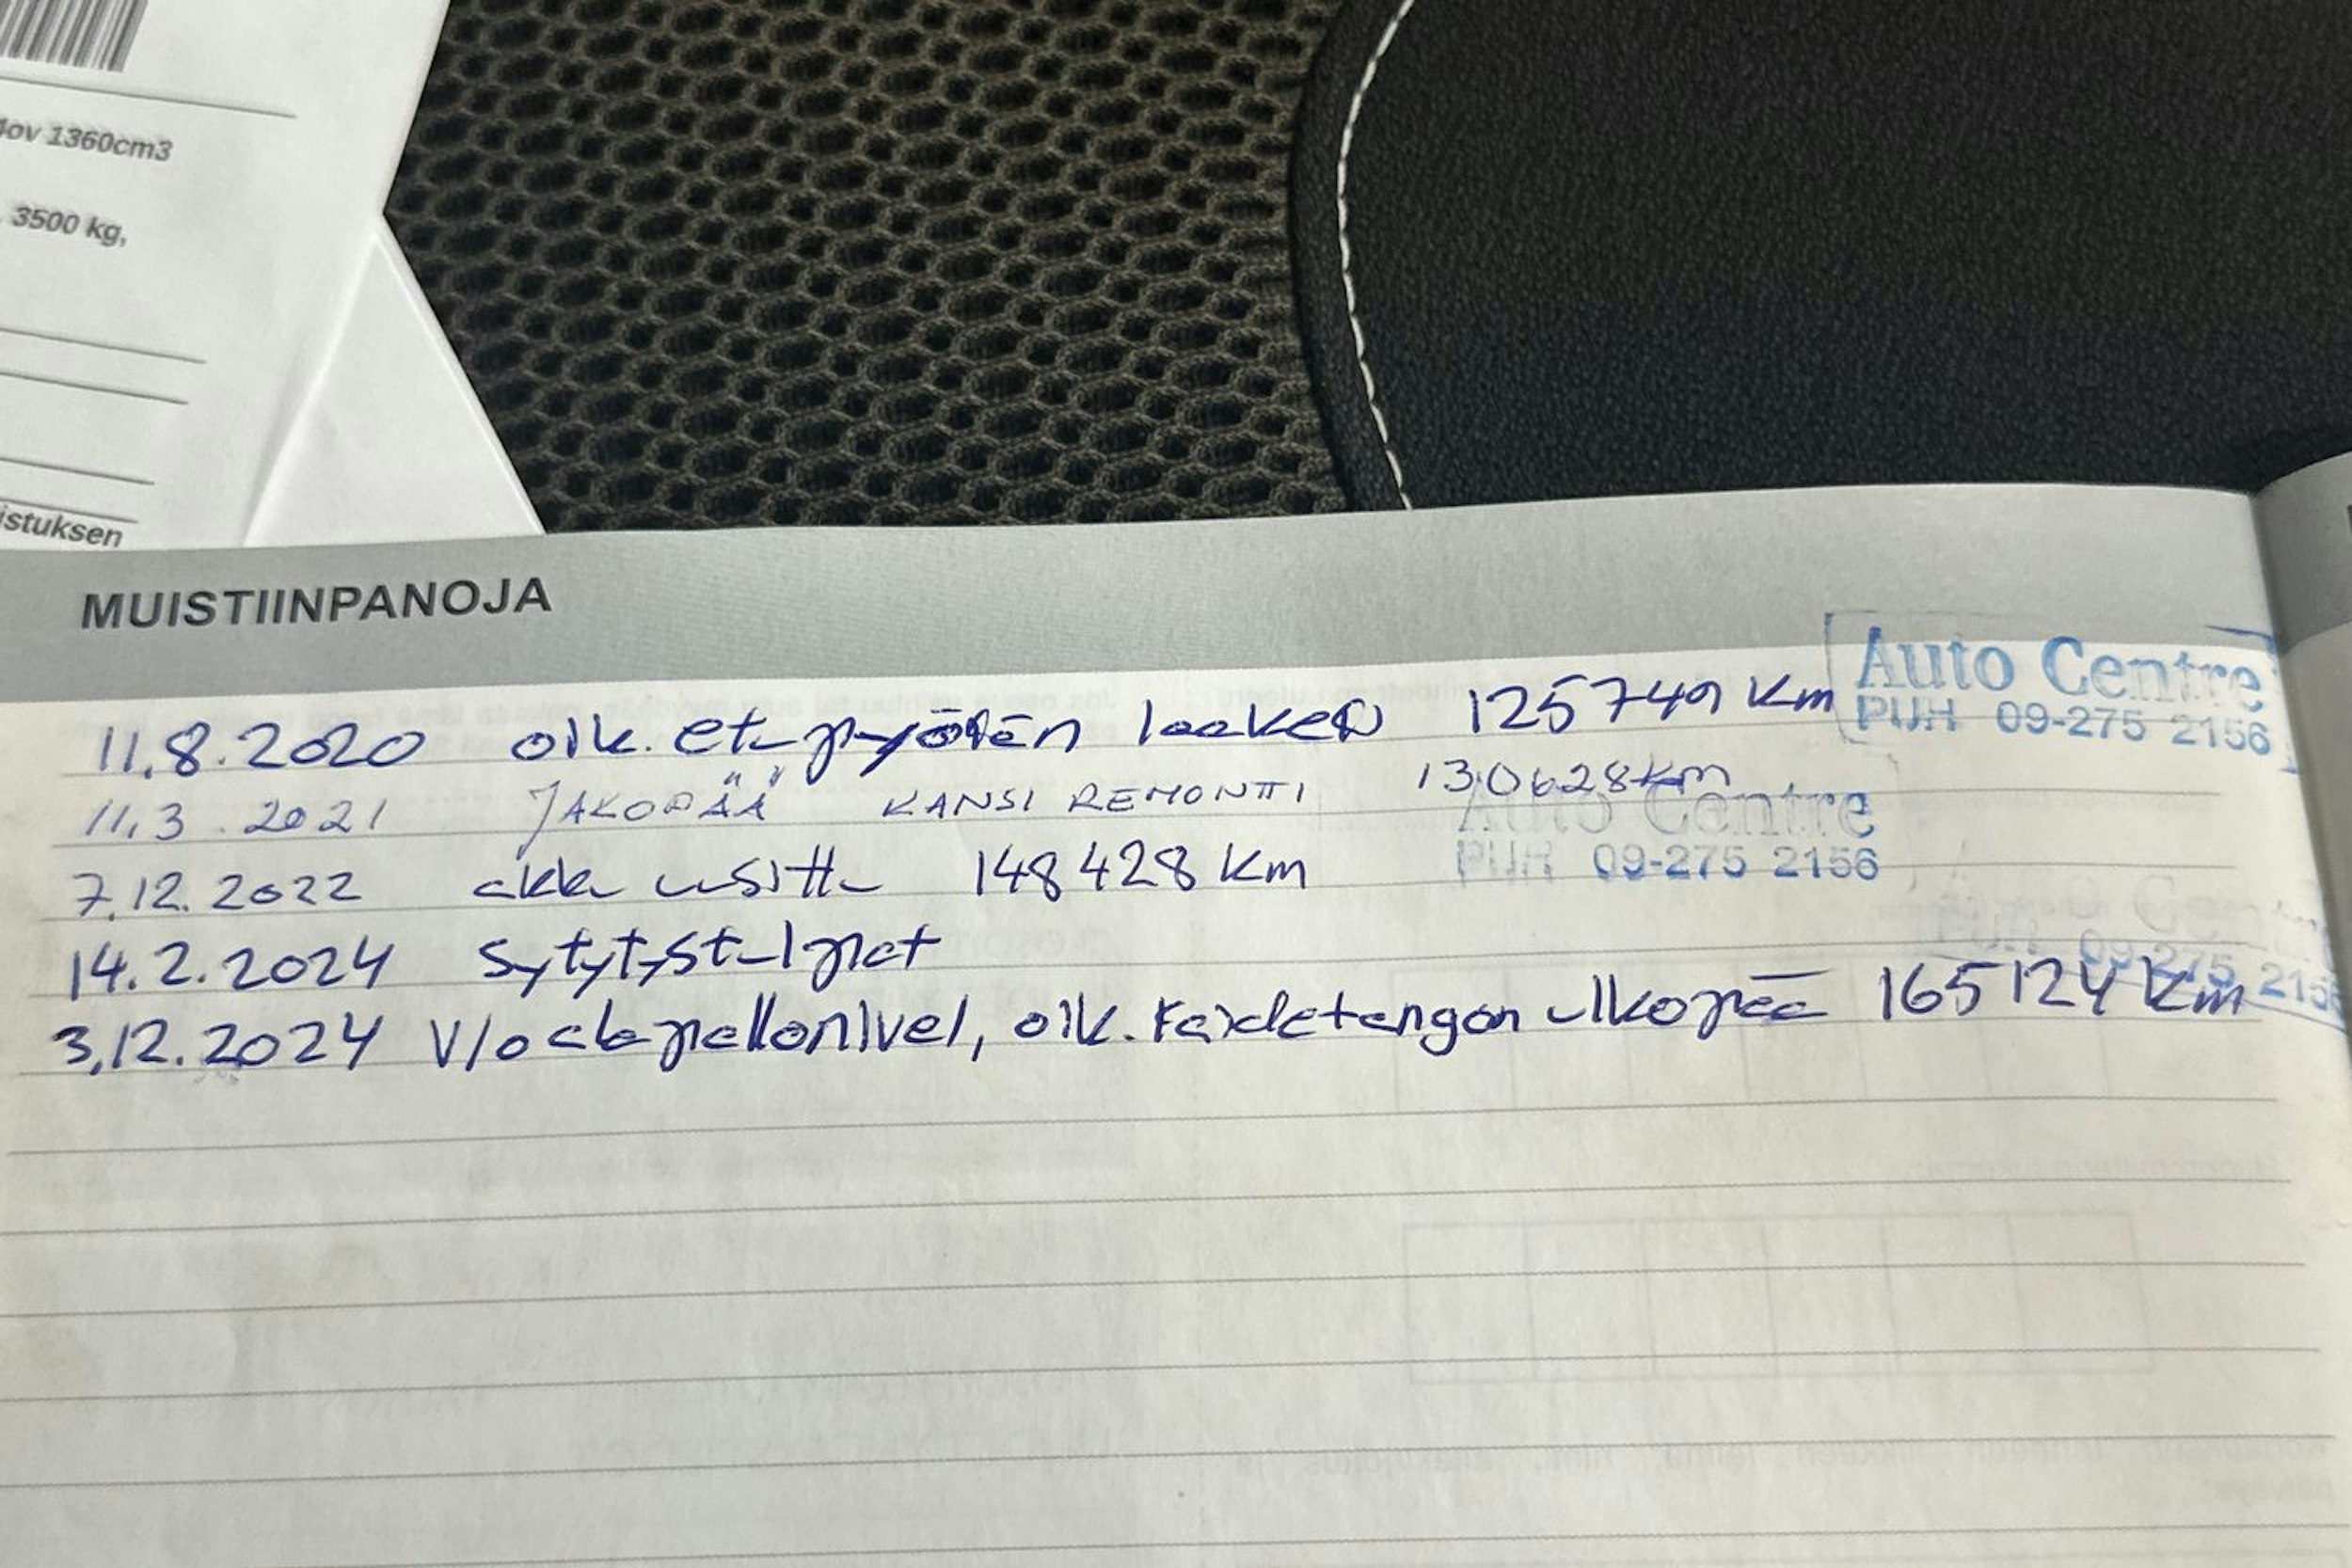 4ov 1360cm3
3500 kg,
istuksen
MUISTIINPANOJA
11.8.2020 oik. etupyörän laakeri 125749 km
Auto Centre
PUH 09-275 2156
11.3.2021 JAKOPÄÄ KANSI REMONTTI 130628km
Auto Centre
PUH 09-275 2156
7.12.2022 akku uusittu 148428 km
14.2.2024 sytytystulpat
PUH 09-275 2156
3.12.2024 V/o alapallonivel, oik. raidetangon ulkopää 165124 km